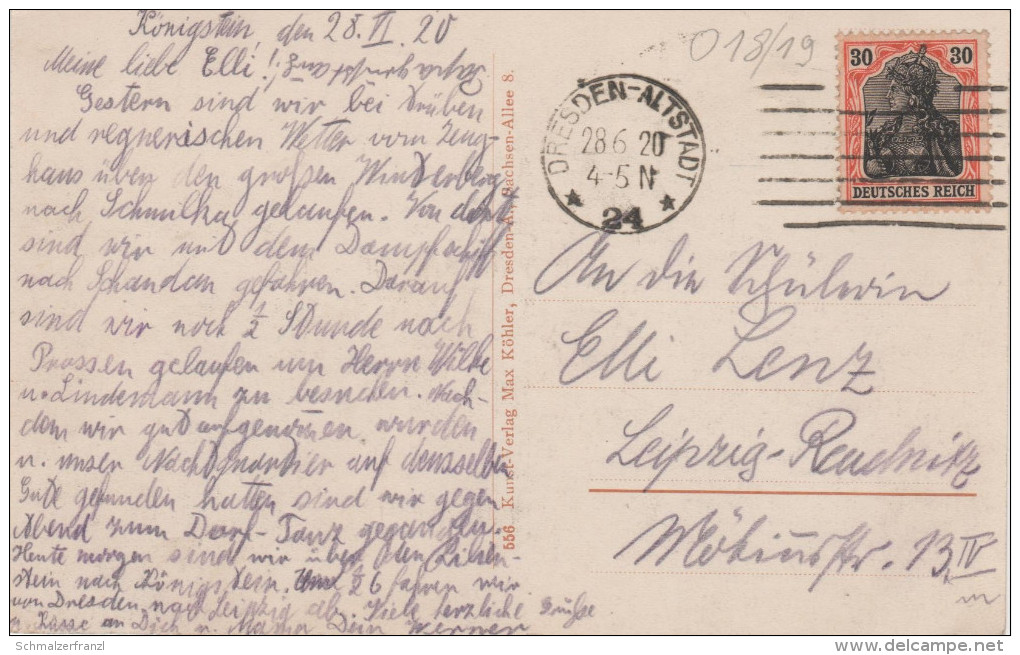 Königstein den 28. VI. 20
Meine liebe Elli!
Gestern sind wir bei trüben
und regnerischen Wetter vom Zeug-
haus über den großen Winterberg
nach Schmilka gelaufen. Von dort
sind wir mit dem Dampfschiff
nach Schandau gefahren. Darauf
sind wir noch 1/2 Stunde nach
Prossen gelaufen um Herrn Wilke
u. Lindemann zu besuchen. Nach-
dem wir gut aufgenommen wurden
u. unser Nachtquartier auf demselben
Gute gefunden hatten sind wir gegen
Abend zum Dorf-Tanz gegangen.
Heute morgen sind wir über den Lilien-
stein nach Königstein. 1/2 6 fahren wir
von Dresden nach Leipzig ab. Viele herzliche Grüße
u. Küsse an Dich u. Mama Dein Werner
556 Kunst-Verlag Max Köhler, Dresden-A., Sachsen-Allee 8.
DRESDEN-ALTSTADT
28.6.20
4-5 N
★ 24 ★
O 18/19
30 30
DEUTSCHES REICH
An die Schülerin
Elli Lenz
Leipzig-Reudnitz
Möbiusstr. 13 IV
Schmalzerfranzl
delcampe.net